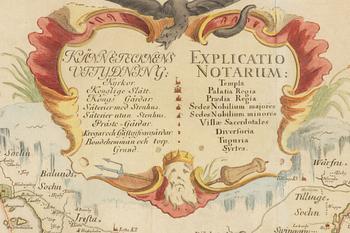 KÄNNETECKNENS
UTTYDNING:
Kyrkor.
Konglige Slått.
Kongs Gårdar.
Säterier med Stenhus.
Säterier utan Stenhus.
Präste-Gårdar.
Krogar och Gästgifvaregårdar.
Bondehemman och torp.
Grund.
EXPLICATIO
NOTARUM:
Templa
Palatia Regia
Prædia Regia
Sedes Nobilium majores
Sedes Nobilium minores
Villæ Sacerdotales
Diversoria
Tuguria
Syrtes.
Sochn
Balunds
Sochn
Irsta
Wårfru
Tillinge
Sochn